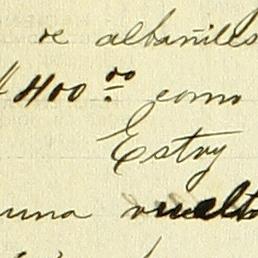 de albañiles
$400.00 como
Estoy
una vuelta